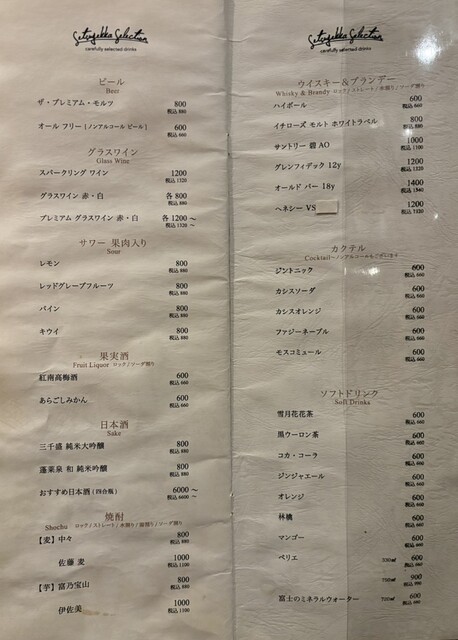 Setsugekka Selection
carefully selected drinks
ビール
Beer
ザ・プレミアム・モルツ 800
税込 880
オール フリー [ノンアルコール ビール] 600
税込 660
グラスワイン
Glass Wine
スパークリング ワイン 1200
税込 1320
グラスワイン 赤・白 各 800
税込 880
プレミアム グラスワイン 赤・白 各 1200 ~
税込 1320 ~
サワー 果肉入り
Sour
レモン 800
税込 880
レッドグレープフルーツ 800
税込 880
パイン 800
税込 880
キウイ 800
税込 880
果実酒
Fruit Liquor ロック/ソーダ割り
紅南高梅酒 600
税込 660
あらごしみかん 600
税込 660
日本酒
Sake
三千盛 純米大吟醸 800
税込 880
蓬莱泉 和 純米吟醸 800
税込 880
おすすめ日本酒 (四合瓶) 6000 ~
税込 6600 ~
焼酎
Shochu ロック/ストレート/水割り/湯割り/ソーダ割り
【麦】中々 800
税込 880
佐藤 麦 1000
税込 1100
【芋】富乃宝山 800
税込 880
伊佐美 1000
税込 1100
Setsugekka Selection
carefully selected drinks
ウイスキー&ブランデー
Whisky & Brandy ロック/ストレート/水割り/ソーダ割り
ハイボール 600
税込 660
イチローズ モルト ホワイトラベル 800
税込 880
サントリー 碧 AO 1000
税込 1100
グレンフィデック 12y 1200
税込 1320
オールド パー 18y 1400
税込 1540
ヘネシー VS 1200
税込 1320
カクテル
Cocktail ~ノンアルコールもございます
ジントニック 600
税込 660
カシスソーダ 600
税込 660
カシスオレンジ 600
税込 660
ファジーネーブル 600
税込 660
モスコミュール 600
税込 660
ソフトドリンク
Soft Drinks
雪月花花茶 600
税込 660
黒ウーロン茶 600
税込 660
コカ・コーラ 600
税込 660
ジンジャエール 600
税込 660
オレンジ 600
税込 660
林檎 600
税込 660
マンゴー 600
税込 660
ペリエ 330㎖ 600
税込 660
750㎖ 900
税込 990
富士のミネラルウォーター 720㎖ 600
税込 660